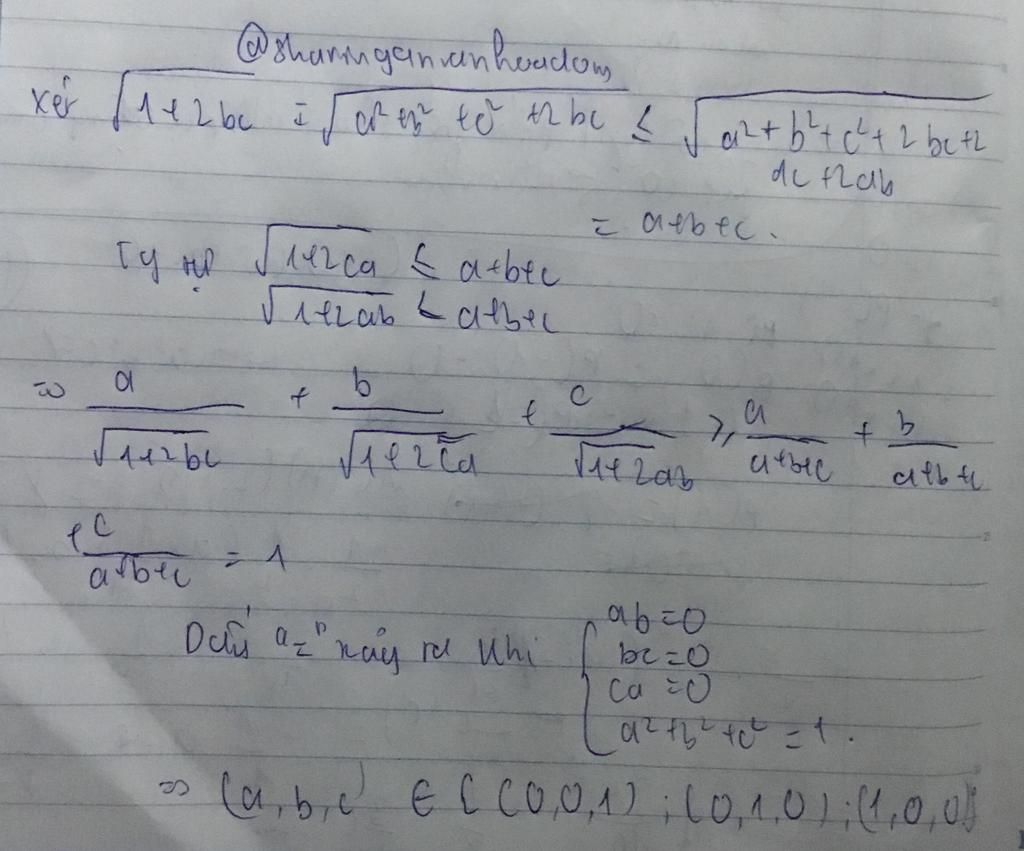 Xét √(1+2bc) = √(a²+b²+c²+2bc) ≤ √(a²+b²+c²+2bc+2
ac+2ab)
= a+b+c.
√(1+2ca) ≤ a+b+c
√(1+2ab) ≤ a+b+c
=> a/√(1+2bc) + b/√(1+2ca) + c/√(1+2ab) ≥ a/(a+b+c) + b/(a+b+c)
+ c/(a+b+c) = 1
Dấu "=" xảy ra khi { ab=0
bc=0
ca=0
a²+b²+c²=1.
=> (a,b,c) ∈ {(0,0,1);(0,1,0);(1,0,0)}